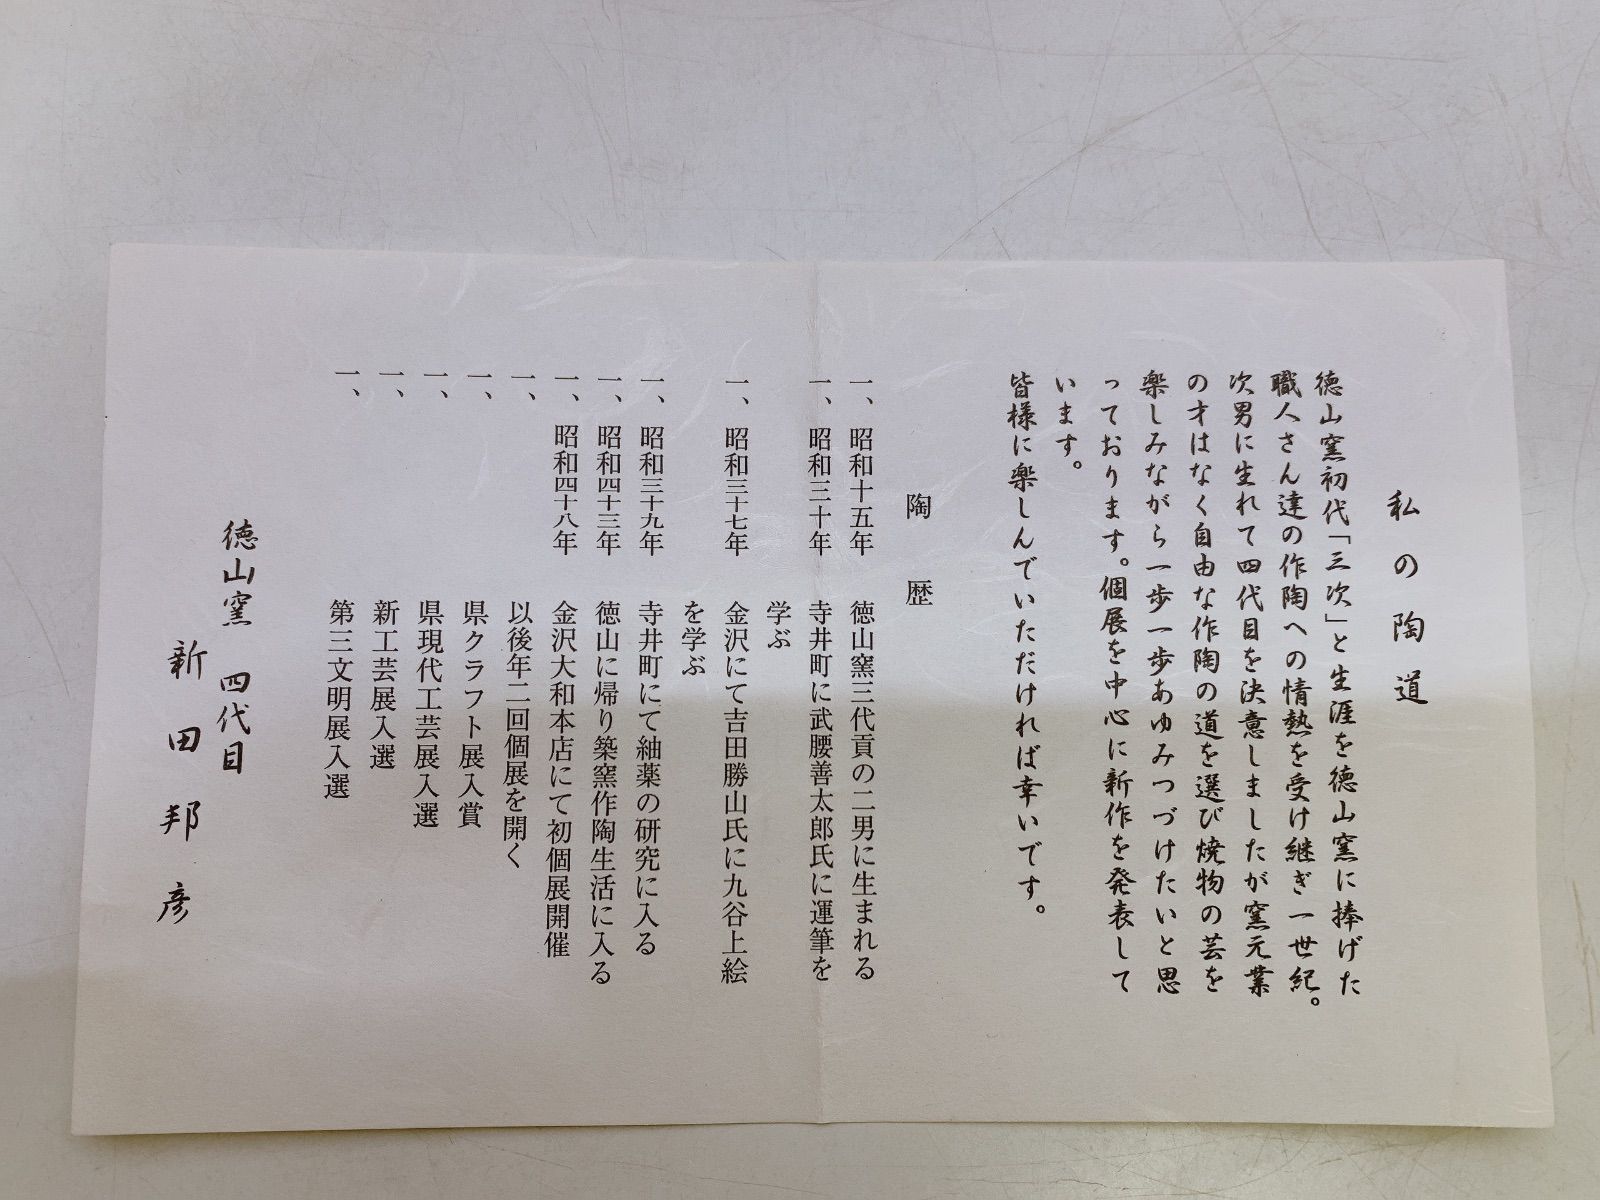 私の陶道
徳山窯初代「三次」と生涯を徳山窯に捧げた
職人さん達の作陶への情熱を受け継ぎ一世紀。
次男に生れて四代目を決意しましたが窯元業
の才はなく自由な作陶の道を選び焼物の芸を
楽しみながら一歩一歩あゆみつづけたいと思
っております。個展を中心に新作を発表して
います。
皆様に楽しんでいただければ幸いです。
陶歴
一、昭和十五年 徳山窯三代貢の二男に生まれる
一、昭和三十年 寺井町に武腰善太郎氏に運筆を
学ぶ
一、昭和三十七年 金沢にて吉田勝山氏に九谷上絵
を学ぶ
一、昭和三十九年 寺井町にて紬薬の研究に入る
一、昭和四十三年 徳山に帰り築窯作陶生活に入る
一、昭和四十八年 金沢大和本店にて初個展開催
一、以後年二回個展を開く
一、県クラフト展入賞
一、県現代工芸展入選
一、新工芸展入選
一、第三文明展入選
徳山窯 四代目
新田邦彦